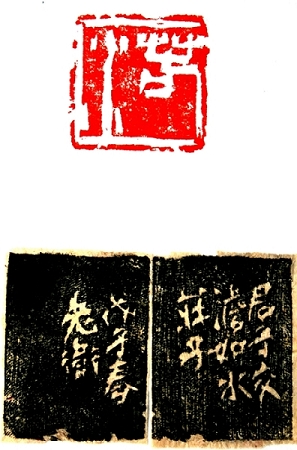 君子交
澹如水
莊子
戊子春
老衛